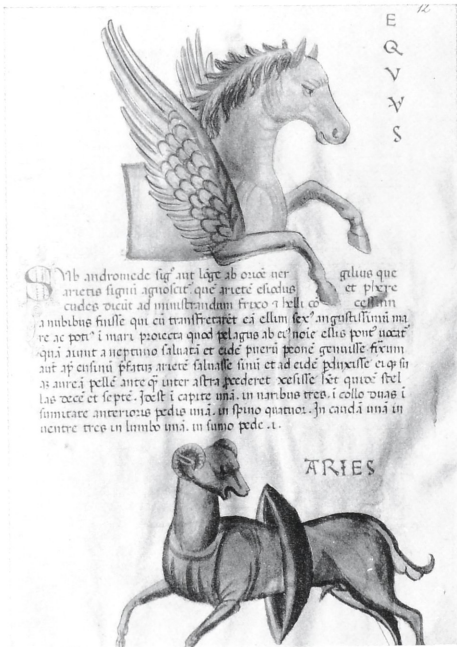 12
E
Q
V
V
S
Sub andromede sig̅ aut lo̅ge ab ortu ner gilius que
arietis signu̅ agnoscit que̅ ariete̅ esiodus et phere
cides dicu̅t ad ministrandum frixo
a nubibus fuisse qui cu̅ transfretaret ea̅ ellum sex̅ angustissimu̅ ma
re ac poti i̅ mari proiecta quod pelagus ab ei noi̅e ellis pont̅ uocat̅
qua̅ aiunt a neptuno saluata̅ et eide̅ pueru̅ peone̅ genuisse frixum
aut ap̅ ensinu̅ p̅fatus ariete̅ saluasse sinu̅ et ad eide̅ p̅duxisse ei
aurea̅ pelle̅ ante q̅ inter astra p̅cederet exisse h̅et quide̅ stel
las dece̅ et septe̅. i̅ capite una̅. in naribus tres. i̅ collo duas i̅
sumitate anterioris pedis una̅. in spino quatuor. In cauda̅ una̅ in
uentre tres in lumbo una̅. in sumo pede .i.
ARIES